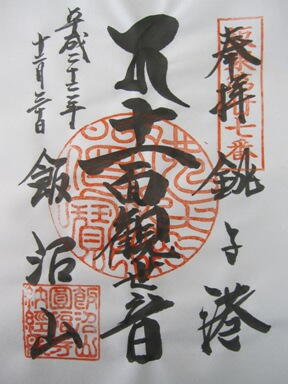 坂東廿七番
奉拝
銚子港
十一面観世音
平成二十二年
飯沼山
飯沼山
圓福寺
納経